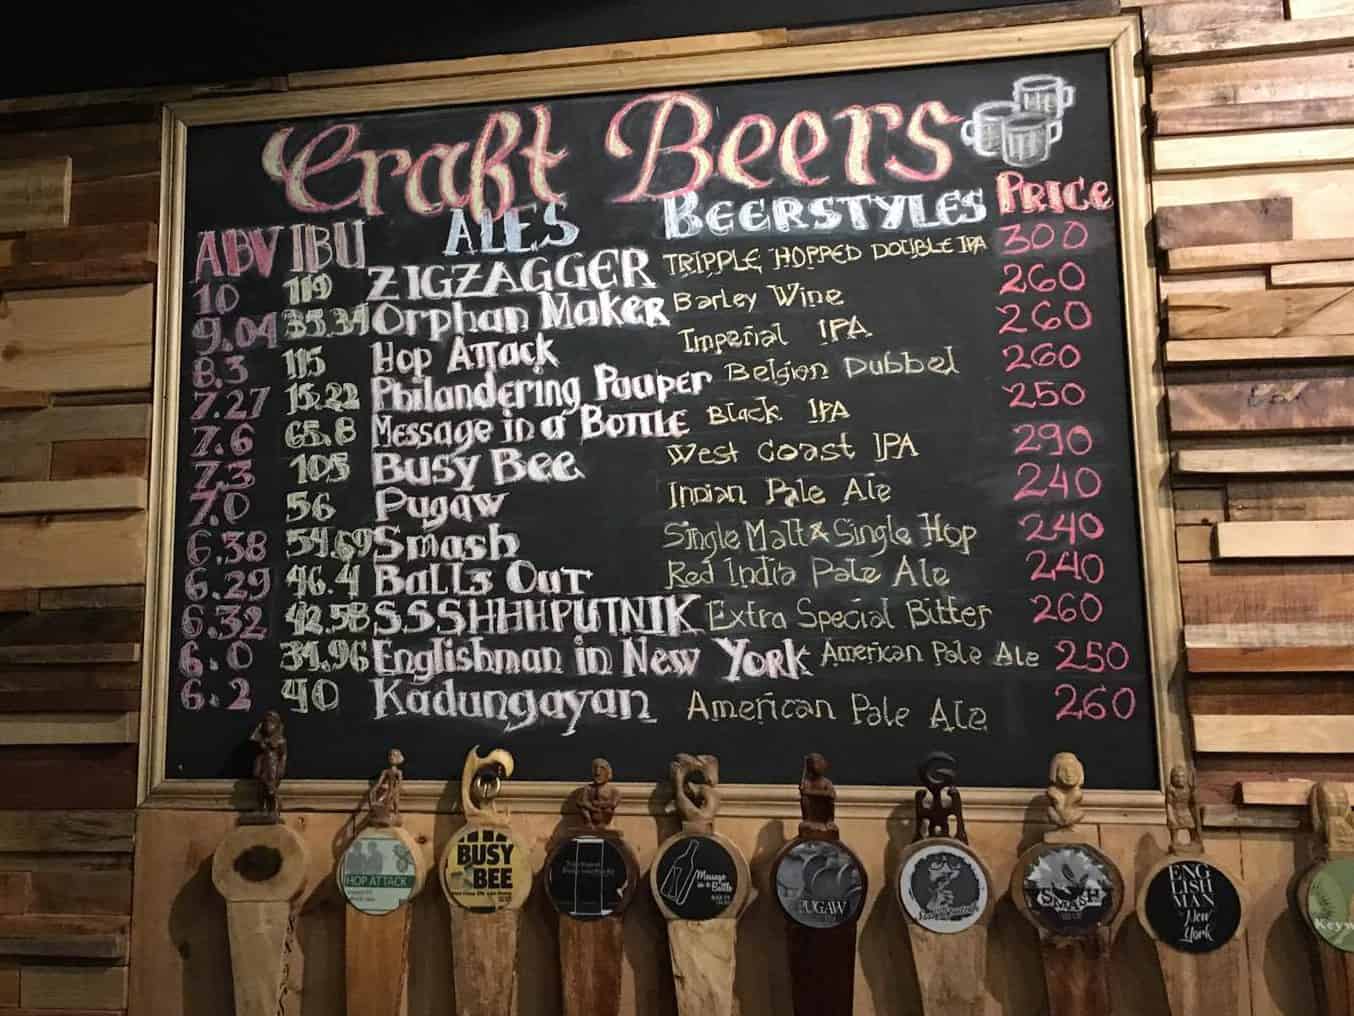 Craft Beers
ABV IBU ALES BEERSTYLES PRICE
10 119 ZIGZAGGER TRIPPLE HOPPED DOUBLE IPA 300
9.04 35.34 Orphan Maker Barley Wine 260
8.3 115 Hop Attack Imperial IPA 260
7.27 15.22 Philandering Pauper Belgion Dubbel 260
7.6 65.8 Message in a Bottle Black IPA 250
7.3 105 Busy Bee West Coast IPA 290
7.0 56 Pugaw Indian Pale Ale 240
6.38 54.69 Smash Single Malt & Single Hop 240
6.29 46.4 Balls Out Red India Pale Ale 240
6.32 42.58 SSSHHHPUTNIK Extra Special Bitter 260
6.0 34.96 Englishman in New York American Pale Ale 250
6.2 40 Kadungayan American Pale Ale 260
HOP ATTACK
BUSY
BEE
Message
in a Bottle
PUGAW
SMASH
ENG
LISH
MAN
in New
York
Keyw